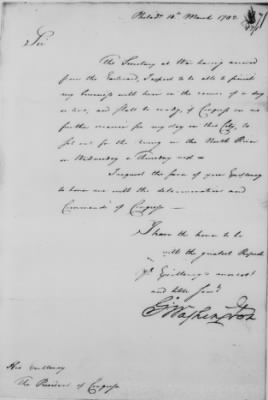 Philadᵃ 18th March 1782
Sir
The Secretary at War having arrived
from the Eastward, I expect to be able to finish
my business with him in the course of a day
or two, and shall be ready, if Congress have no
further occasion for my stay in this City, to
set out for the Army on the North River
on Wednesday or Thursday next
I request the favor of your Excellency
to honor me with the determination and
Commands of Congress
I have the honor to be
with the greatest Respect
Yr Excellency's
and Servt
Go Washington
His Excellency
The President of Congress